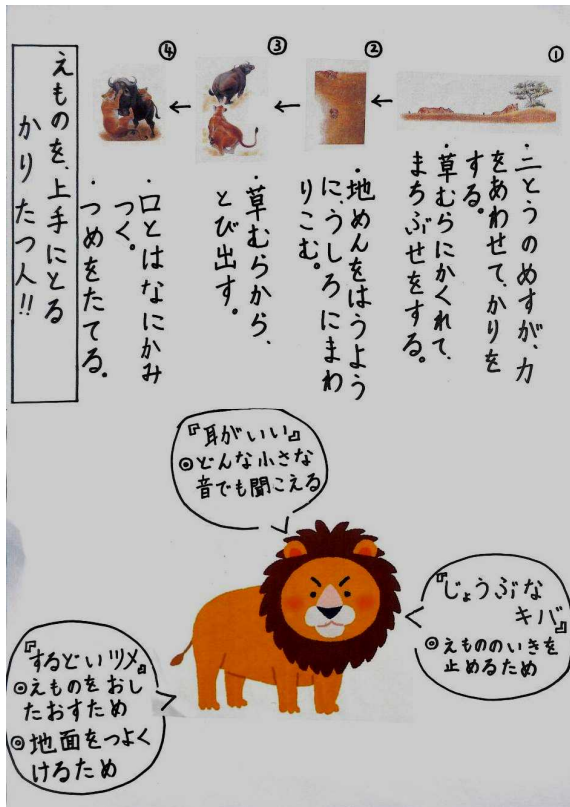 ①
・二とうのめすが、力
をあわせて、かりを
する。
・草むらにかくれて、
まちぶせをする。
②
・地めんをはうよう
に、うしろにまわ
りこむ。
③
・草むらから、
とび出す。
④
・口とはなにかみ
つく。
・つめをたてる。
えものを、上手にとる
かりたつ人!!
『耳がいい』
◎どんな小さな
音でも聞こえる
『じょうぶな
キバ』
◎えもののいきを
止めるため
『するどいツメ』
◎えものをおし
たおすため
◎地面をつよく
けるため